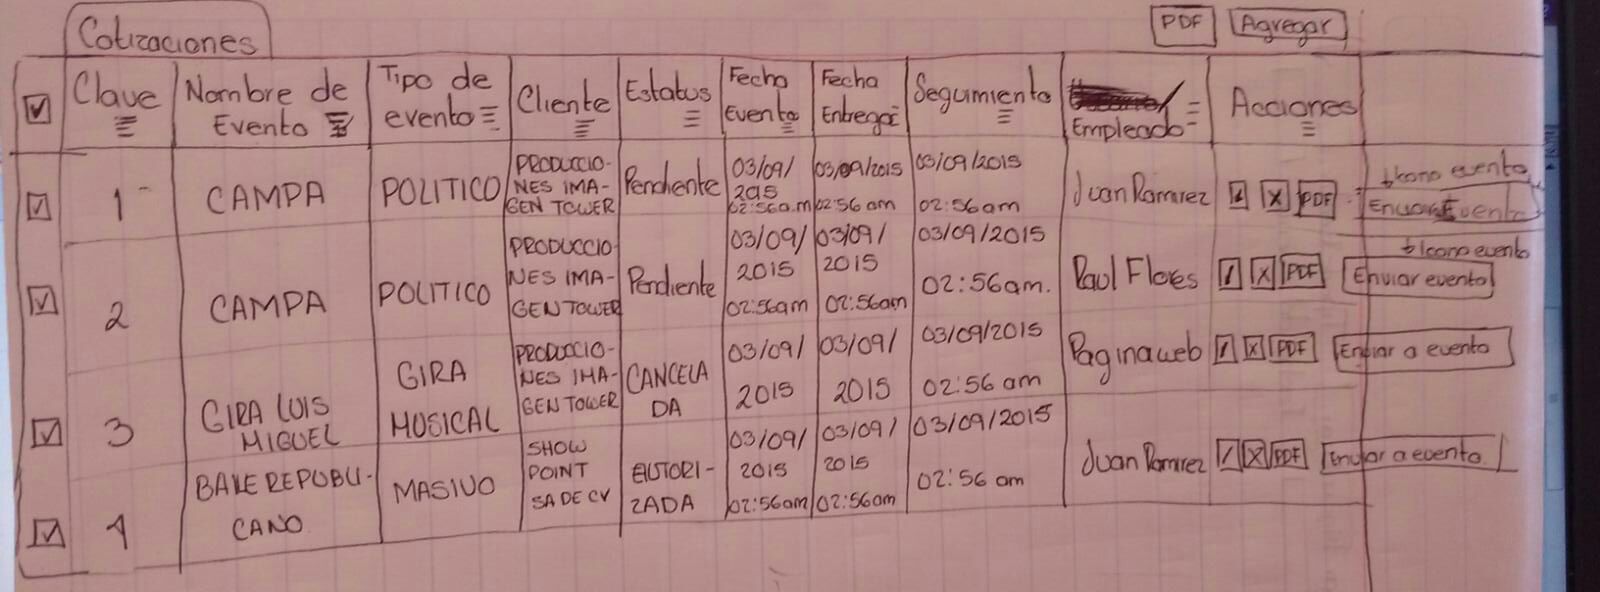 Cotizaciones
PDF Agregar
Clave
Nombre de
Evento
Tipo de
evento
Cliente
Estatus
Fecha
Evento
Fecha
Entrega
Seguimiento
Empleado
Acciones
1
CAMPA
POLITICO
PRODUCCIO-
NES IMA-
GEN TOWER
Pendiente
03/09/
2015
02:56a.m
03/09/2015
02:56 am
03/09/2015
02:56am
Juan Ramirez
X
PDF
Icono evento
Enviar Evento
2
CAMPA
POLITICO
PRODUCCIO-
NES IMA-
GEN TOWER
Pendiente
03/09/
2015
02:56am
03/09/
2015
02:56am
03/09/2015
02:56am.
Raul Flores
/ X PDF
Icono evento
Enviar evento
3
GIRA LUIS
MIGUEL
GIRA
MUSICAL
PRODUCCIO-
NES IMA-
GEN TOWER
CANCELA
DA
03/09/
2015
03/09/
2015
03/09/2015
02:56 am
Pagina web
/ X PDF
Enviar a evento
4
BAILE REPUBLI-
CANO
MASIVO
SHOW
POINT
SA DE CV
AUTORI-
ZADA
03/09/
2015
02:56am
03/09/
2015
02:56am
03/09/2015
02:56 am
Juan Ramirez
/ X PDF
Enviar a evento